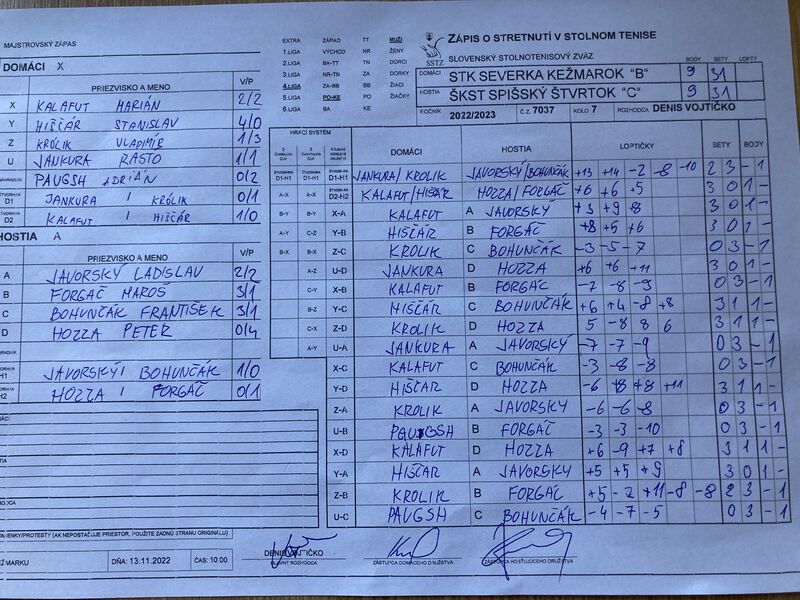 MAJSTROVSKÝ ZÁPAS
EXTRA ZÁPAD TT MUŽI
1.LIGA VÝCHOD NR ŽENY
2.LIGA BA-TT TN DORCI
3.LIGA NR-TN ZA DORKY
4.LIGA ZA-BB BB ŽIACI
5.LIGA PO-KE PO ŽIAČKY
6.LIGA BA KE
SSTZ
ZÁPIS O STRETNUTÍ V STOLNOM TENISE
SLOVENSKÝ STOLNOTENISOVÝ ZVÄZ
BODY SETY LOPTY
DOMÁCI STK SEVERKA KEŽMAROK "B" 9 31
HOSTIA ŠKST SPIŠSKÝ ŠTVRTOK "C" 9 31
ROČNÍK 2022/2023 Č.Z. 7037 KOLO 7 ROZHODCA DENIS VOJTIČKO
DOMÁCI X
PRIEZVISKO A MENO V/P
X KALAFUT MARIÁN 2/2
Y HIŠČÁR STANISLAV 4/0
Z KRÓLIK VLADIMÍR 1/3
U JANKURA RASTO 1/1
PAUGSH ADRIÁN 0/2
D1 JANKURA / KRÓLIK 0/1
D2 KALAFUT / HIŠČÁR 1/0
HOSTIA A
PRIEZVISKO A MENO V/P
A JAVORSKÝ LADISLAV 2/2
B FORGÁČ MAROŠ 3/1
C BOHUNČÁK FRANTIŠEK 3/1
D HOZZA PETER 0/4
H1 JAVORSKÝ / BOHUNČÁK 1/0
H2 HOZZA / FORGÁČ 0/1
HRACÍ SYSTÉM DOMÁCI HOSTIA LOPTIČKY SETY BODY
D1-H1 D1-H1 D1-H1 JANKURA/KROLIK JAVORSKÝ/BOHUNČÁK +13 +14 -2 -8 -10 2 3 - 1
A-X A-X D2-H2 KALAFUT/HIŠČÁR HOZZA/FORGÁČ +6 +6 +5 3 0 1 -
B-Y B-Y X-A KALAFUT A JAVORSKÝ +3 +9 +8 3 0 1 -
A-Y C-Z Y-B HIŠČÁR B FORGÁČ +8 +5 +6 3 0 1 -
B-X B-X Z-C KROLIK C BOHUNČÁK -3 -5 -7 0 3 - 1
A-Z U-D JANKURA D HOZZA +6 +6 +11 3 0 1 -
C-Y X-B KALAFUT B FORGÁČ -7 -8 -9 0 3 - 1
B-Z Y-C HIŠČÁR C BOHUNČÁK +6 +4 -8 +8 3 1 1 -
C-X Z-D KROLIK D HOZZA 5 -8 8 6 3 1 1 -
A-Y U-A JANKURA A JAVORSKÝ -7 -7 -9 0 3 - 1
X-C KALAFUT C BOHUNČÁK -3 -8 -8 0 3 - 1
Y-D HIŠČAR D HOZZA -6 +8 +8 +11 3 1 1 -
Z-A KROLIK A JAVORSKÝ -6 -6 -8 0 3 - 1
U-B PAUGSH B FORGÁČ -3 -3 -10 0 3 - 1
X-D KALAFUT D HOZZA +6 -9 +7 +8 3 1 1 -
Y-A HIŠČAR A JAVORSKY +5 +5 +9 3 0 1 -
Z-B KROLIK B FORGÁČ +5 -2 +11 -8 -8 2 3 - 1
U-C PAUGSH C BOHUNČÁK -4 -7 -5 0 3 - 1
MIENKY/PROTESTY (AK NEPOSTAČUJE PRIESTOR, POUŽITE ZADNÚ STRANU ORIGINÁLU)
MARKU DŇA: 13.11.2022 ČAS: 10:00
DENIS VOJTIČKO
HLAVNÝ ROZHODCA ZÁSTUPCA DOMÁCEHO DRUŽSTVA ZÁSTUPCA HOSŤUJÚCEHO DRUŽSTVA